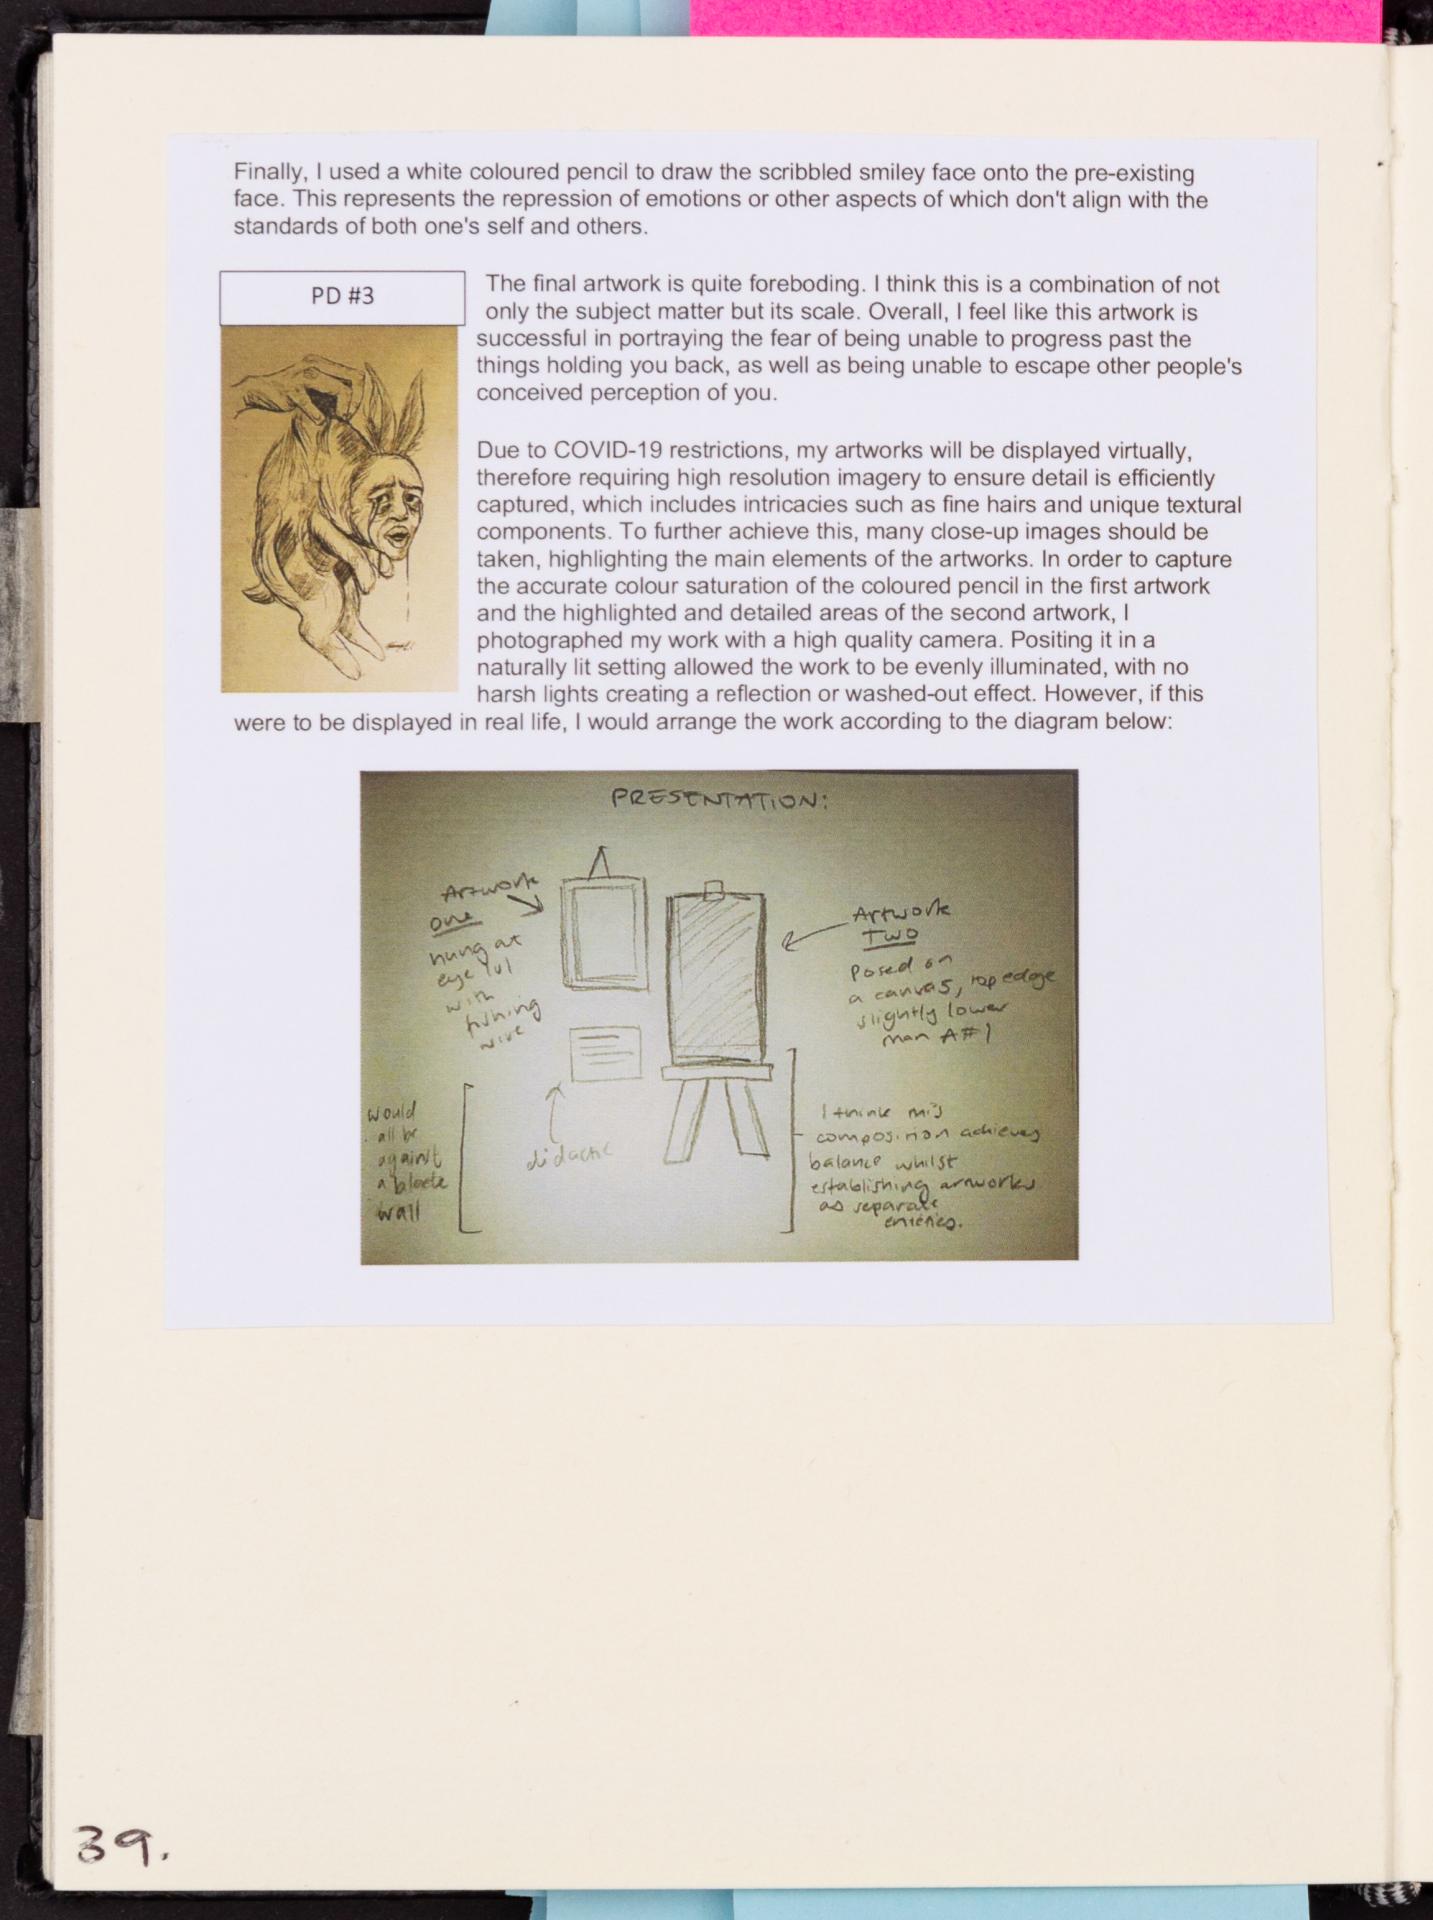 Finally, I used a white coloured pencil to draw the scribbled smiley face onto the pre-existing
face. This represents the repression of emotions or other aspects of which don't align with the
standards of both one's self and others.
PD #3
The final artwork is quite foreboding. I think this is a combination of not
only the subject matter but its scale. Overall, I feel like this artwork is
successful in portraying the fear of being unable to progress past the
things holding you back, as well as being unable to escape other people's
conceived perception of you.
Due to COVID-19 restrictions, my artworks will be displayed virtually,
therefore requiring high resolution imagery to ensure detail is efficiently
captured, which includes intricacies such as fine hairs and unique textural
components. To further achieve this, many close-up images should be
taken, highlighting the main elements of the artworks. In order to capture
the accurate colour saturation of the coloured pencil in the first artwork
and the highlighted and detailed areas of the second artwork, I
photographed my work with a high quality camera. Positing it in a
naturally lit setting allowed the work to be evenly illuminated, with no
harsh lights creating a reflection or washed-out effect. However, if this
were to be displayed in real life, I would arrange the work according to the diagram below:
PRESENTATION:
Artwork
one
hung at
eye lvl
with
fishing
wire
Artwork
Two
Posed on
a canvas, top edge
slightly lower
than A#1
would
all be
against
a black
wall
didactic
I think this
composition achieves
balance whilst
establishing artworks
as separate
enteties.
39.